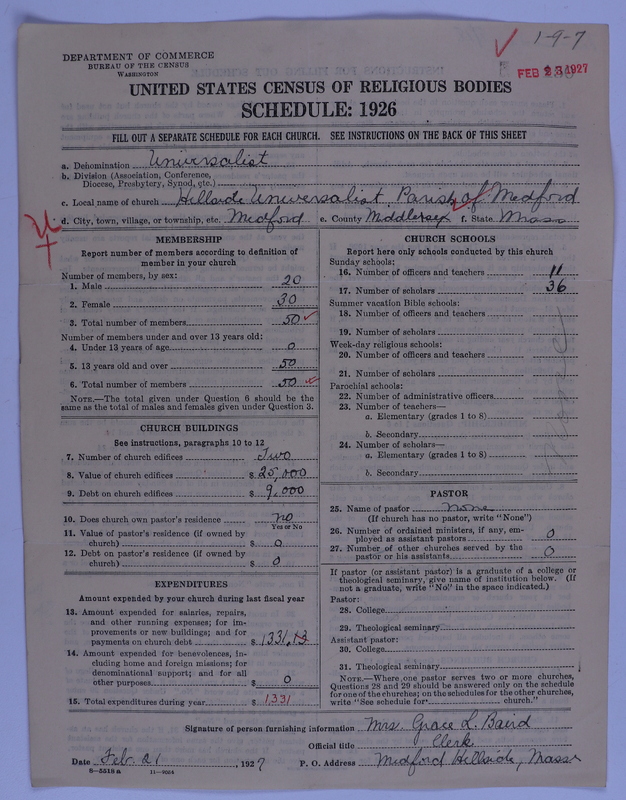 1-9-7
FEB 23 1927
DEPARTMENT OF COMMERCE
BUREAU OF THE CENSUS
WASHINGTON
UNITED STATES CENSUS OF RELIGIOUS BODIES
SCHEDULE: 1926
FILL OUT A SEPARATE SCHEDULE FOR EACH CHURCH. SEE INSTRUCTIONS ON THE BACK OF THIS SHEET
a. Denomination Universalist
b. Division (Association, Conference,
Diocese, Presbytery, Synod, etc.)
c. Local name of church Hillside Universalist Parish of Medford
d. City, town, village, or township, etc. Medford e. County Middlesex f. State Mass
MEMBERSHIP
Report number of members according to definition of
member in your church
Number of members, by sex:
1. Male 20
2. Female 30
3. Total number of members 50
Number of members under and over 13 years old:
4. Under 13 years of age 0
5. 13 years old and over 50
6. Total number of members 50
NOTE.—The total given under Question 6 should be the
same as the total of males and females given under Question 3.
CHURCH BUILDINGS
See instructions, paragraphs 10 to 12
7. Number of church edifices Two
8. Value of church edifices $ 25,000
9. Debt on church edifices $ 9,000
10. Does church own pastor's residence no
Yes or No
11. Value of pastor's residence (if owned by
church) $ 0
12. Debt on pastor's residence (if owned by
church) $ 0
EXPENDITURES
Amount expended by your church during last fiscal year
13. Amount expended for salaries, repairs,
and other running expenses; for im-
provements or new buildings; and for
payments on church debt $ 1331,13
14. Amount expended for benevolences, in-
cluding home and foreign missions; for
denominational support; and for all
other purposes $ 0
15. Total expenditures during year $ 1331
CHURCH SCHOOLS
Report here only schools conducted by this church
Sunday schools:
16. Number of officers and teachers 11
17. Number of scholars 36
Summer vacation Bible schools:
18. Number of officers and teachers
19. Number of scholars
Week-day religious schools:
20. Number of officers and teachers
21. Number of scholars
Parochial schools:
22. Number of administrative officers
23. Number of teachers—
a. Elementary (grades 1 to 8)
b. Secondary
24. Number of scholars—
a. Elementary (grades 1 to 8)
b. Secondary
none
PASTOR
25. Name of pastor none
(If church has no pastor, write "None")
26. Number of ordained ministers, if any, em-
ployed as assistant pastors 0
27. Number of other churches served by the
pastor or his assistants 0
If pastor (or assistant pastor) is a graduate of a college or
theological seminary, give name of institution below. (If
not a graduate, write "No" in the space indicated.)
Pastor:
28. College
29. Theological seminary
Assistant pastor:
30. College
31. Theological seminary
NOTE.—Where one pastor serves two or more churches,
Questions 28 and 29 should be answered only on the schedule
for one of the churches; on the schedules for the other churches,
write "See schedule for church."
Signature of person furnishing information Mrs. Grace L. Baird
Official title Clerk
Date Feb. 21, 1927 P. O. Address Medford Hillside, Mass
8—5518 a 11—9054